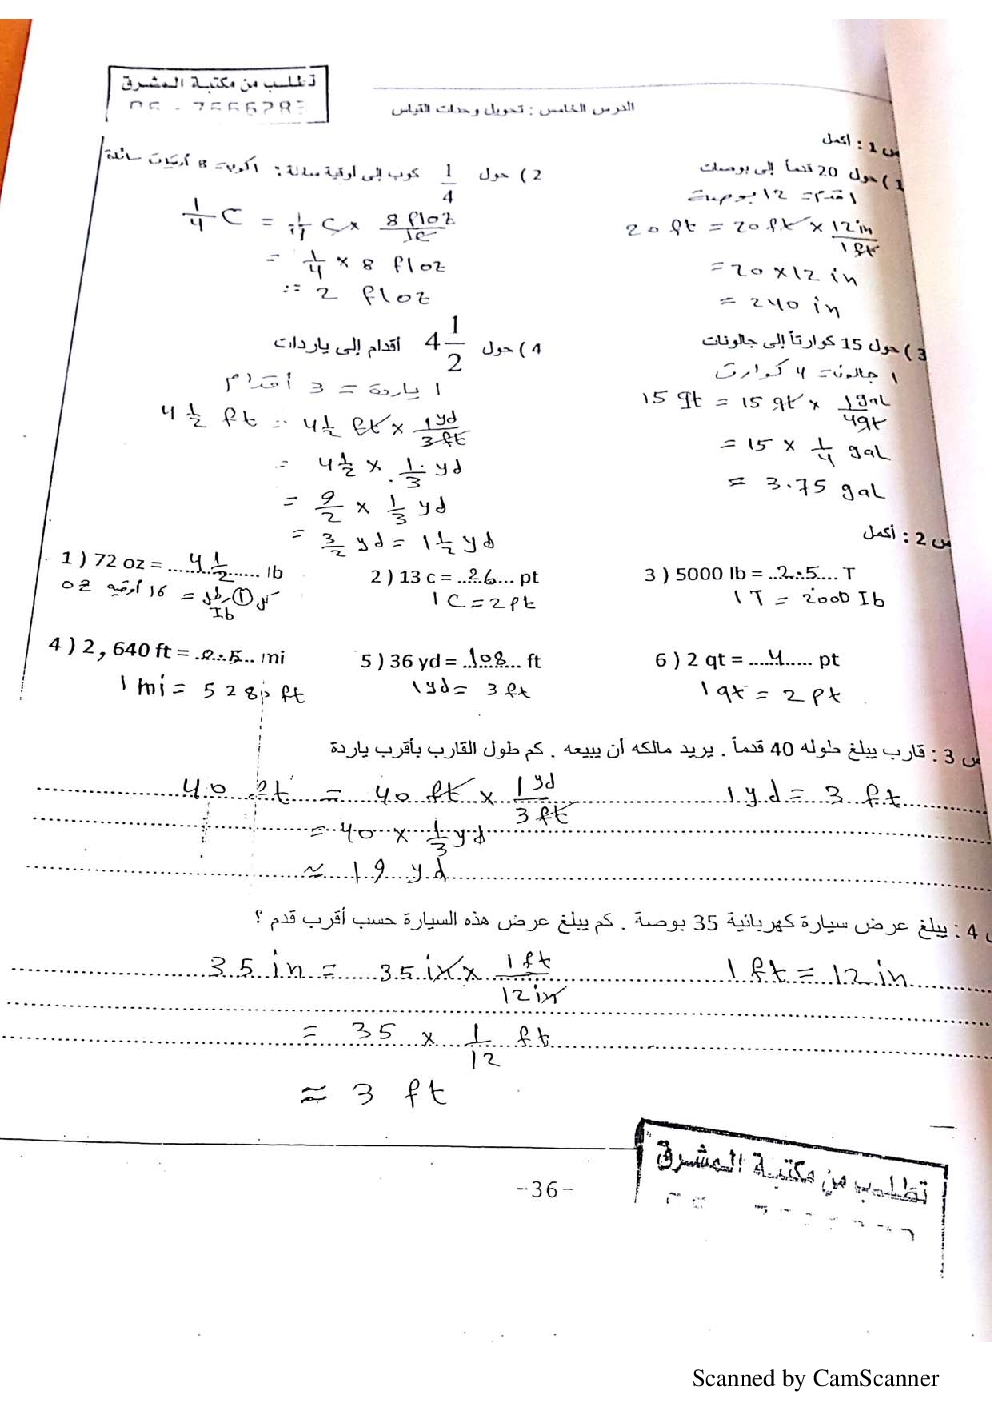 تطلب من مكتبة المشرق
الدرس الخامس : تحويل وحدات القياس
س 1 : أكمل
1 ) حول 20 قدماً إلى بوصات
1 قدم = 12 بوصة
20 ft = 20 ft × 12 in / 1 ft
= 20 × 12 in
= 240 in
2 ) حول 1/4 كوب إلى أوقية سائلة : 1 كوب = 8 أوقيات سائلة
1/4 C = 1/4 C × 8 floz / 1c
= 1/4 × 8 floz
= 2 floz
3 ) حول 15 كوارتاً إلى جالونات
1 جالون = 4 كوارت
15 qt = 15 qt × 1 gal / 4 qt
= 15 × 1/4 gal
= 3.75 gal
4 ) حول 4 1/2 أقدام إلى ياردات
1 ياردة = 3 أقدام
4 1/2 ft = 4 1/2 ft × 1 yd / 3 ft
= 4 1/2 × 1/3 yd
= 9/2 × 1/3 yd
= 3/2 yd = 1 1/2 yd
س 2 : أكمل
1 ) 72 oz = ...4 1/2... lb
كل 1 رطل = 16 أوقية oz
Ib
2 ) 13 c = ..26.... pt
1 C = 2 pt
3 ) 5000 lb = ..2.5.... T
1 T = 2000 Ib
4 ) 2, 640 ft = ..0.5.. mi
1 mi = 5280 ft
5 ) 36 yd = .108... ft
1 yd = 3 ft
6 ) 2 qt = ....4...... pt
1 qt = 2 pt
س 3 : قارب يبلغ طوله 40 قدماً . يريد مالكه أن يبيعه . كم طول القارب بأقرب ياردة
1 yd = 3 ft
40 ft = 40 ft × 1 yd / 3 ft
= 40 × 1/3 yd
≈ 19 yd
4 : يبلغ عرض سيارة كهربائية 35 بوصة . كم يبلغ عرض هذه السيارة حسب أقرب قدم ؟
1 ft = 12 in
35 in = 35 in × 1 ft / 12 in
= 35 × 1/12 ft
≈ 3 ft
-36-
تطلب من مكتبة المشرق
Scanned by CamScanner